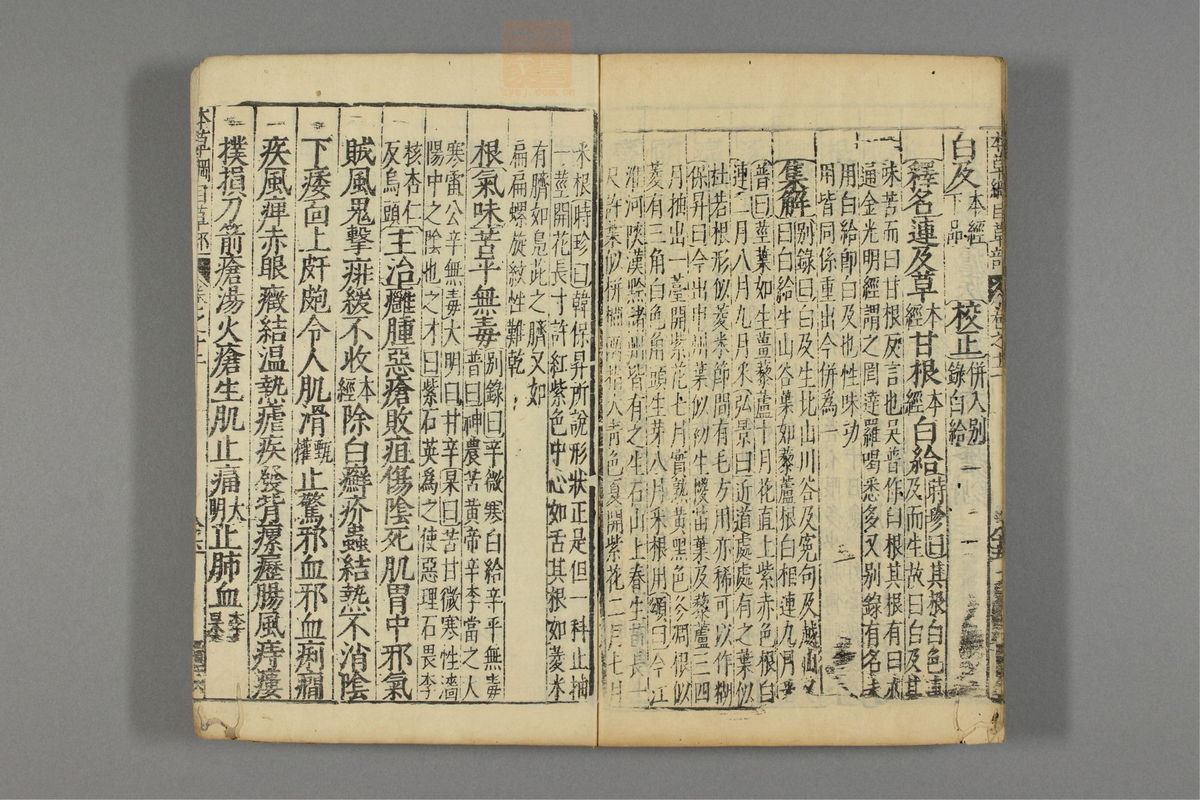 白及本經下品 校正併入別錄白給
釋名連及草本經甘根本經白給時珍曰其根白色連
及而生故曰白及其
味苦而曰甘根反言也吳普作臼根其根有臼亦
通金光明經謂之罔達羅喝悉多又別錄有名未
用白給即白及也性味功
用皆同係重出今併為一
集解別錄曰白及生北山川谷及冤句及越山又
曰白給生山谷葉如藜蘆根白相連九月采
普曰莖葉如生薑藜蘆十月花直上紫赤色根白
連二月八月九月采弘景曰近道處處有之葉似
杜若根形似菱米節間有毛方用亦稀可以作糊
保昇曰今出申州葉似初生椶苗葉及藜蘆三四
月抽出一薹開紫花七月實熟黃黑色冬凋根似
菱有三角白色角頭生芽八月采根用頌曰今江
淮河陝漢黔諸州皆有之生石山上春生苗長一
尺許葉似栟櫚兩指大青色夏開紫花二月七月
采根時珍曰韓保昇所說形狀正是但一科止抽
一莖開花長寸許紅紫色中心如舌其根如菱米
有臍如鳧茈之臍又如
扁扁螺旋紋性難乾
根氣味苦平無毒別錄曰辛微寒白給辛平無毒
普曰神農苦黃帝辛李當之大
寒雷公辛無毒大明曰甘辛杲曰苦甘微寒性濇
陽中之陰也之才曰紫石英為之使惡理石畏李
核杏仁
反烏頭主治癰腫惡瘡敗疽傷陰死肌胃中邪氣
賊風鬼擊痱緩不收本經除白癬疥蟲結熱不消陰
下痿面上皯皰令人肌滑甄權止驚邪血邪血痢癇
疾風痺赤眼癥結溫熱瘧疾發背瘰癧腸風痔瘻
撲損刀箭瘡湯火瘡生肌止痛大明止肺血李杲
本草綱目草部